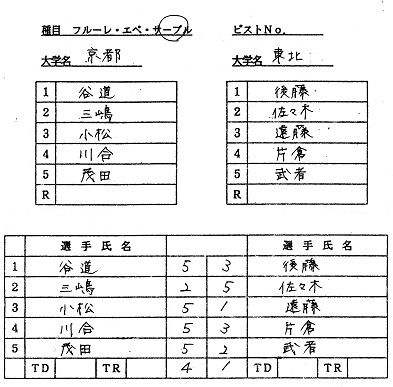 種目 フルーレ・エペ・サーブル ピストNo.
大学名 京都 大学名 東北
1 谷道 1 後藤
2 三嶋 2 佐々木
3 小松 3 遠藤
4 川合 4 片倉
5 茂田 5 武者
R R
選手氏名 選手氏名
1 谷道 5 3 後藤
2 三嶋 2 5 佐々木
3 小松 5 1 遠藤
4 川合 5 3 片倉
5 茂田 5 2 武者
TD TR 4 1 TD TR